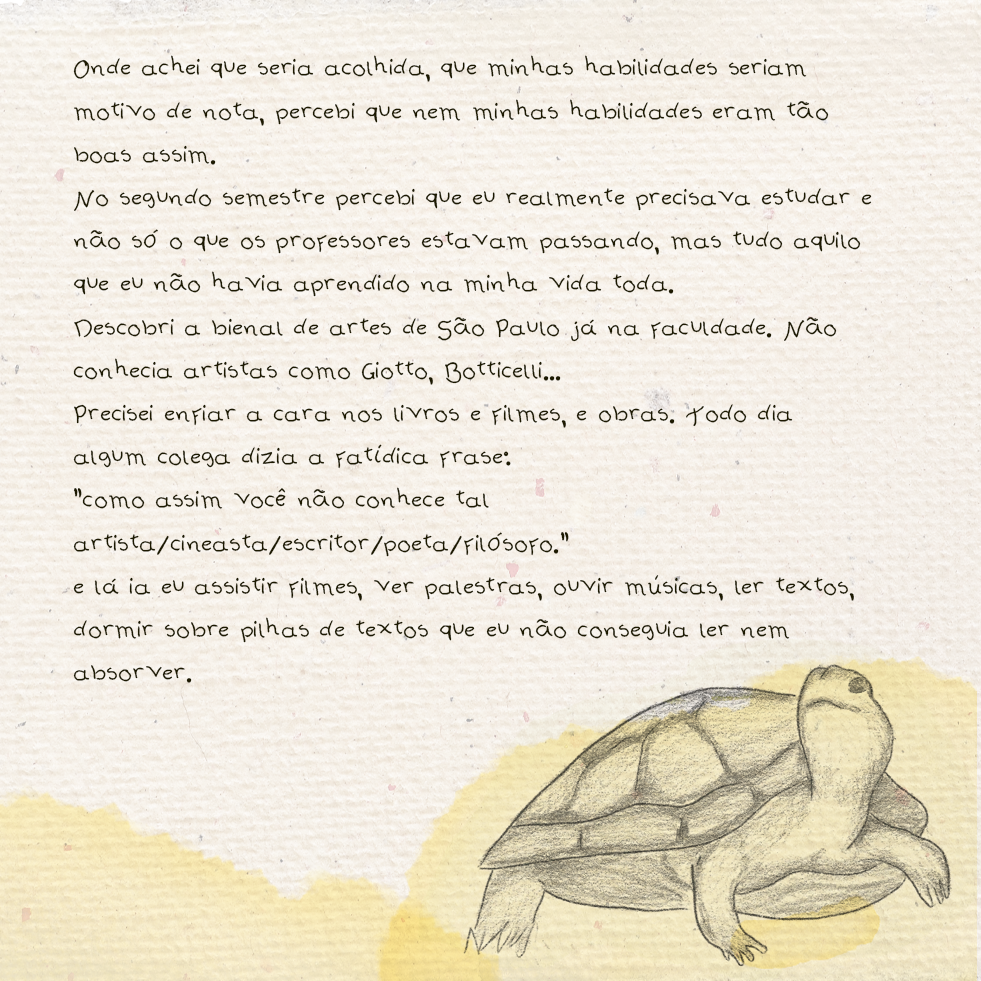 Onde achei que seria acolhida, que minhas habilidades seriam
motivo de nota, percebi que nem minhas habilidades eram tão
boas assim.
No segundo semestre percebi que eu realmente precisava estudar e
não só o que os professores estavam passando, mas tudo aquilo
que eu não havia aprendido na minha vida toda.
Descobri a bienal de artes de São Paulo já na faculdade. Não
conhecia artistas como Giotto, Botticelli...
Precisei enfiar a cara nos livros e filmes, e obras. Todo dia
algum colega dizia a fatídica frase:
"como assim você não conhece tal
artista/cineasta/escritor/poeta/filósofo."
e lá ia eu assistir filmes, ver palestras, ouvir músicas, ler textos,
dormir sobre pilhas de textos que eu não conseguia ler nem
absorver.